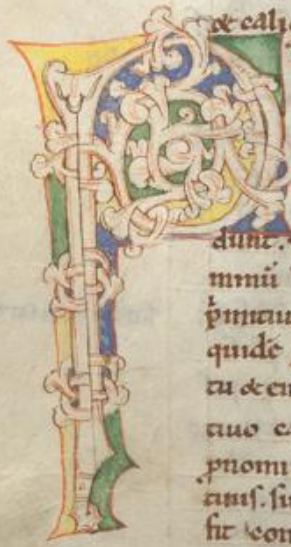 P
& cali
dunt.
minū
p̄mittu
quidē
tu & cu
tiuo ca
pnomi
tiuis. si
fit com